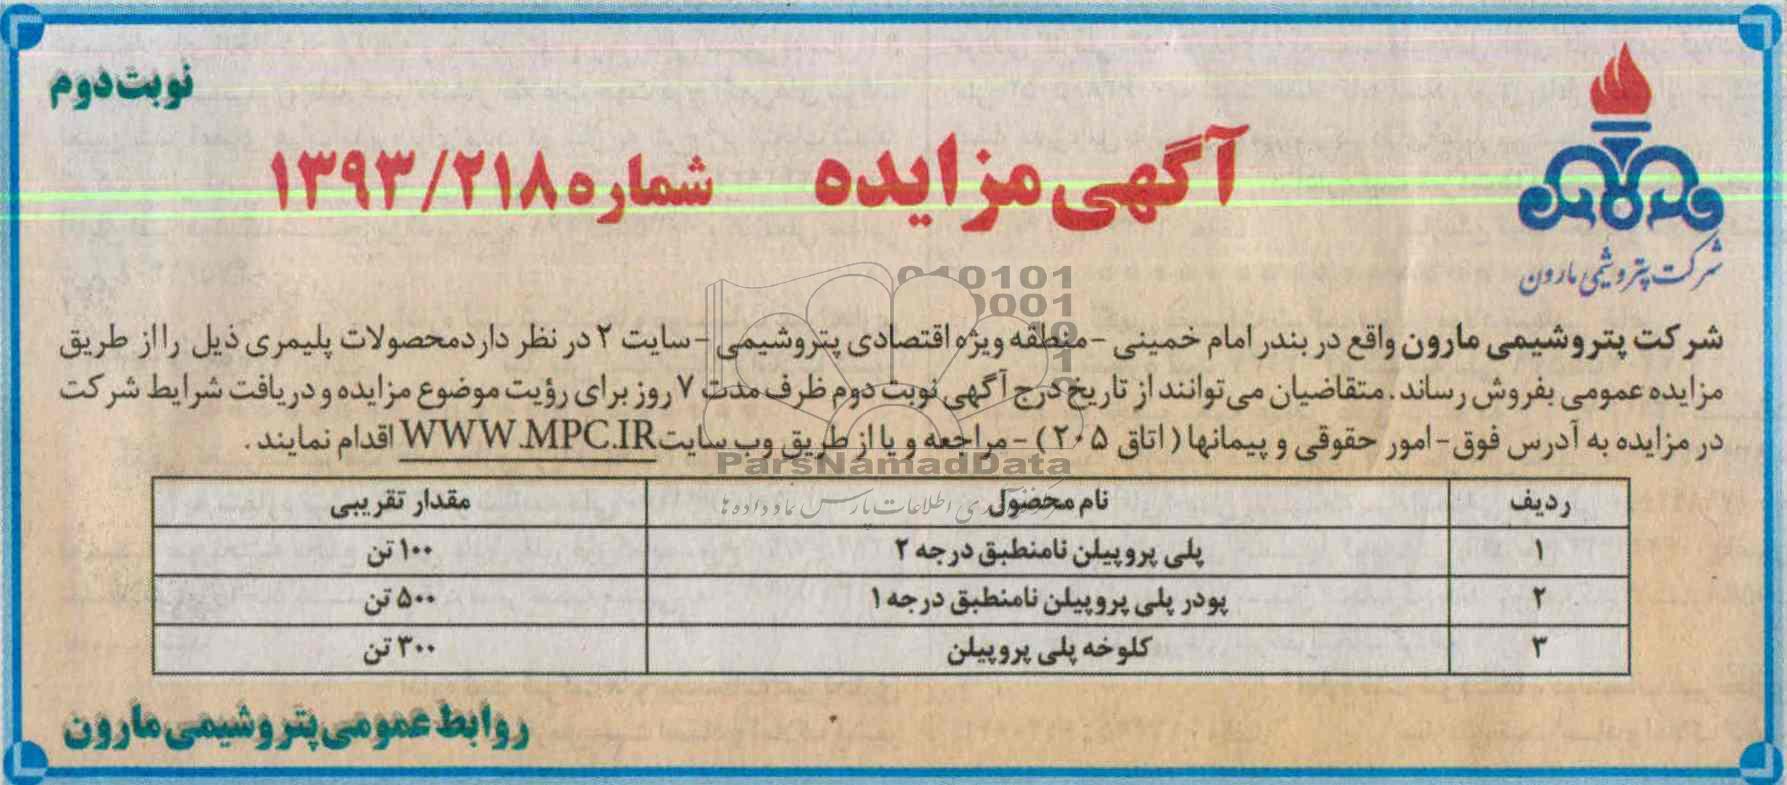 نوبت دوم
آگهی مزایده شماره ۱۳۹۳/۲۱۸
شرکت پتروشیمی مارون
شرکت پتروشیمی مارون واقع در بندر امام خمینی - منطقه ویژه اقتصادی پتروشیمی - سایت ۲ در نظر دارد محصولات پلیمری ذیل را از طریق
مزایده عمومی بفروش رساند. متقاضیان می توانند از تاریخ درج آگهی نوبت دوم ظرف مدت ۷ روز برای رؤیت موضوع مزایده و دریافت شرایط شرکت
در مزایده به آدرس فوق - امور حقوقی و پیمانها ( اتاق ۲۰۵ ) - مراجعه و یا از طریق وب سایت WWW.MPC.IR اقدام نمایند .
ردیف نام محصول مقدار تقریبی
۱ پلی پروپیلن نامنطبق درجه ۲ ۱۰۰ تن
۲ پودر پلی پروپیلن نامنطبق درجه ۱ ۵۰۰ تن
۳ کلوخه پلی پروپیلن ۳۰۰ تن
روابط عمومی پتروشیمی مارون
ParsNamadData